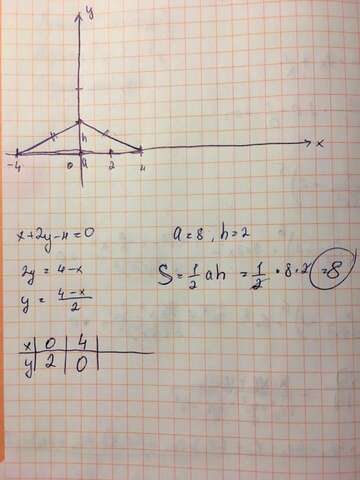 y
h
x
-4 0 a 2 4
x+2y-4=0
a=8, h=2
2y = 4-x
S = 1/2 ah = 1/2 · 8 · 2 = 8
y = 4-x/2
x | 0 | 4
y | 2 | 0